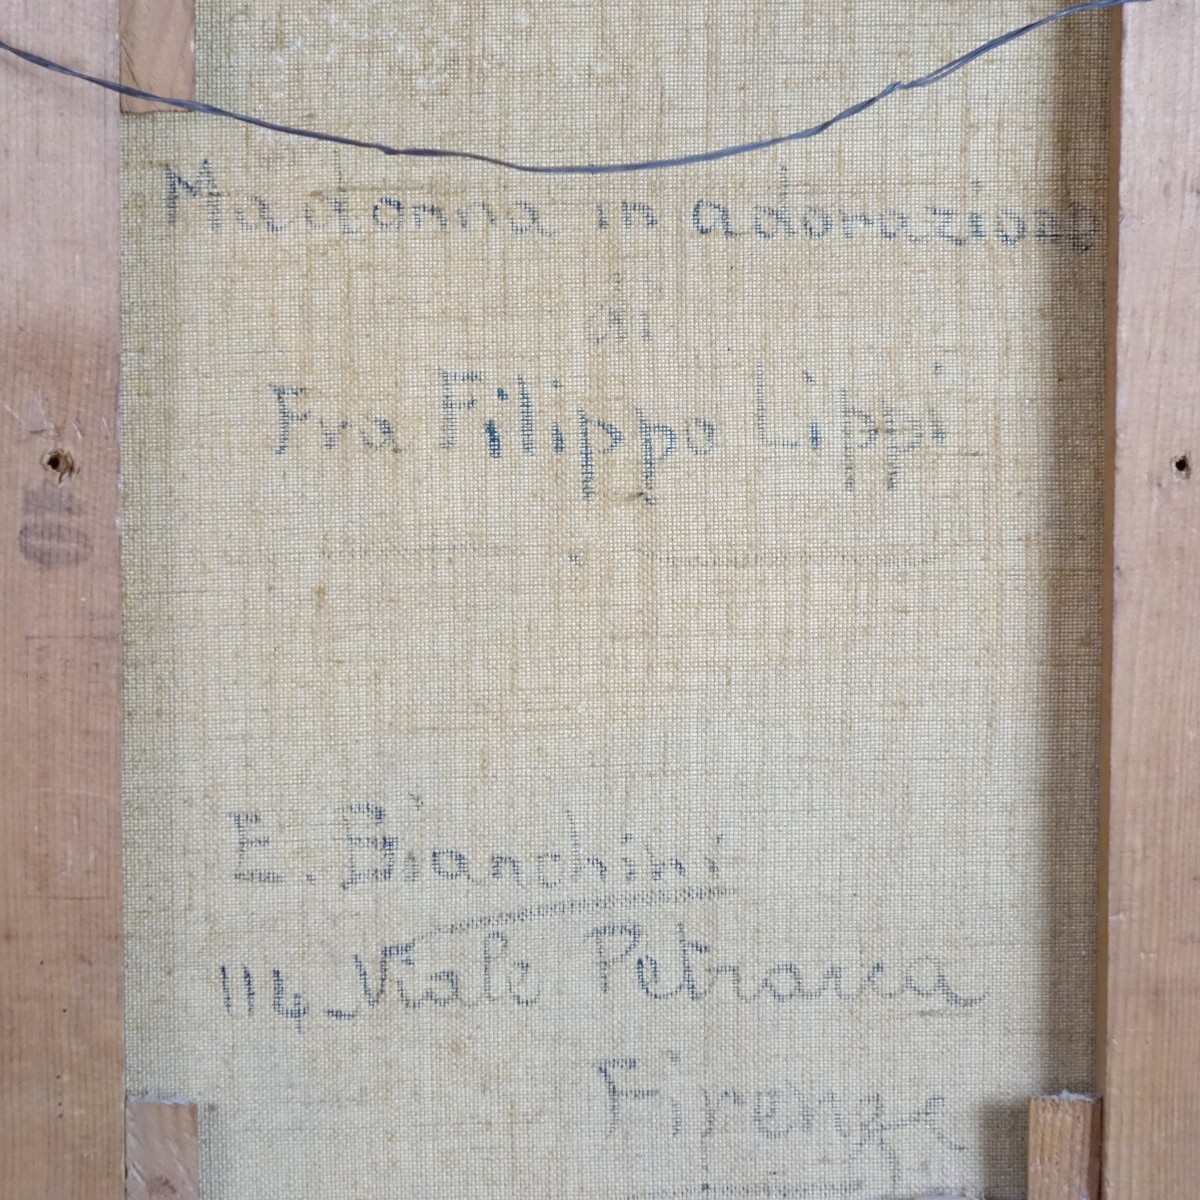 Madonna in adorazione
di
Fra Filippo Lippi
E. Bianchini
114 Viale Petrarca
Firenze